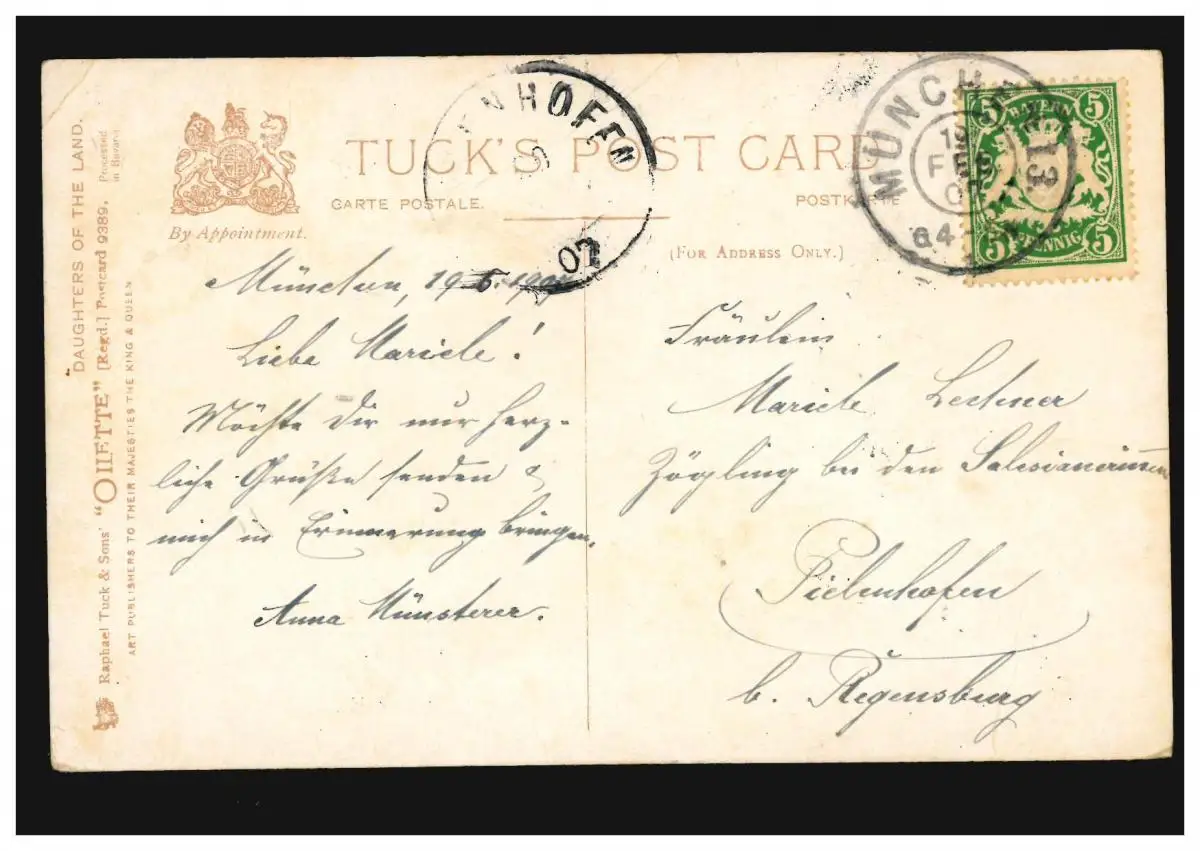 DAUGHTERS OF THE LAND.
Processed in Bavaria
Raphael Tuck & Sons' "OILETTE" [Regd.] Postcard 9389.
ART PUBLISHERS TO THEIR MAJESTIES THE KING & QUEEN
By Appointment.
TUCK'S POST CARD
CARTE POSTALE.
POSTKARTE
(FOR ADDRESS ONLY.)
ENHOFEN
07
MÜNCHEN 13.
19
FEB
07
BAYERN
5 5
5 PFENNIG 5
München, 19.
Liebe Mariele!
Möchte Dir nur herz-
liche Grüße senden &
mich in Erinnerung bringen.
Anna Münsterer.
Fräulein
Mariele Lechner
Zögling bei den Salesianerinnen
Pielenhofen
b. Regensburg